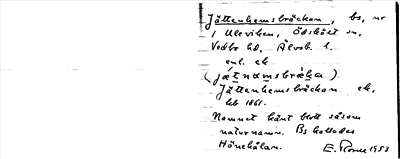 Jättenhemsbräckan, bs, nr
1 Ulleviken, Ödskölt sn,
Vedbo hd, Älvsb. l.
enl. ek
(jätnömsbräka)
Jättenhemsbräckan ek,
lsk 1861.
Namnet känt blott såsom
naturnamn. Bs kallades
Hönehålan. E. 1953